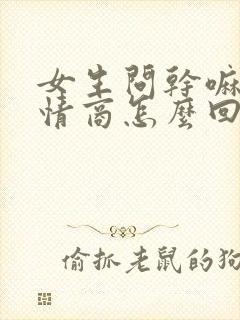 女生問幹嘛
情商怎麼回
偷抓老鼠的狗